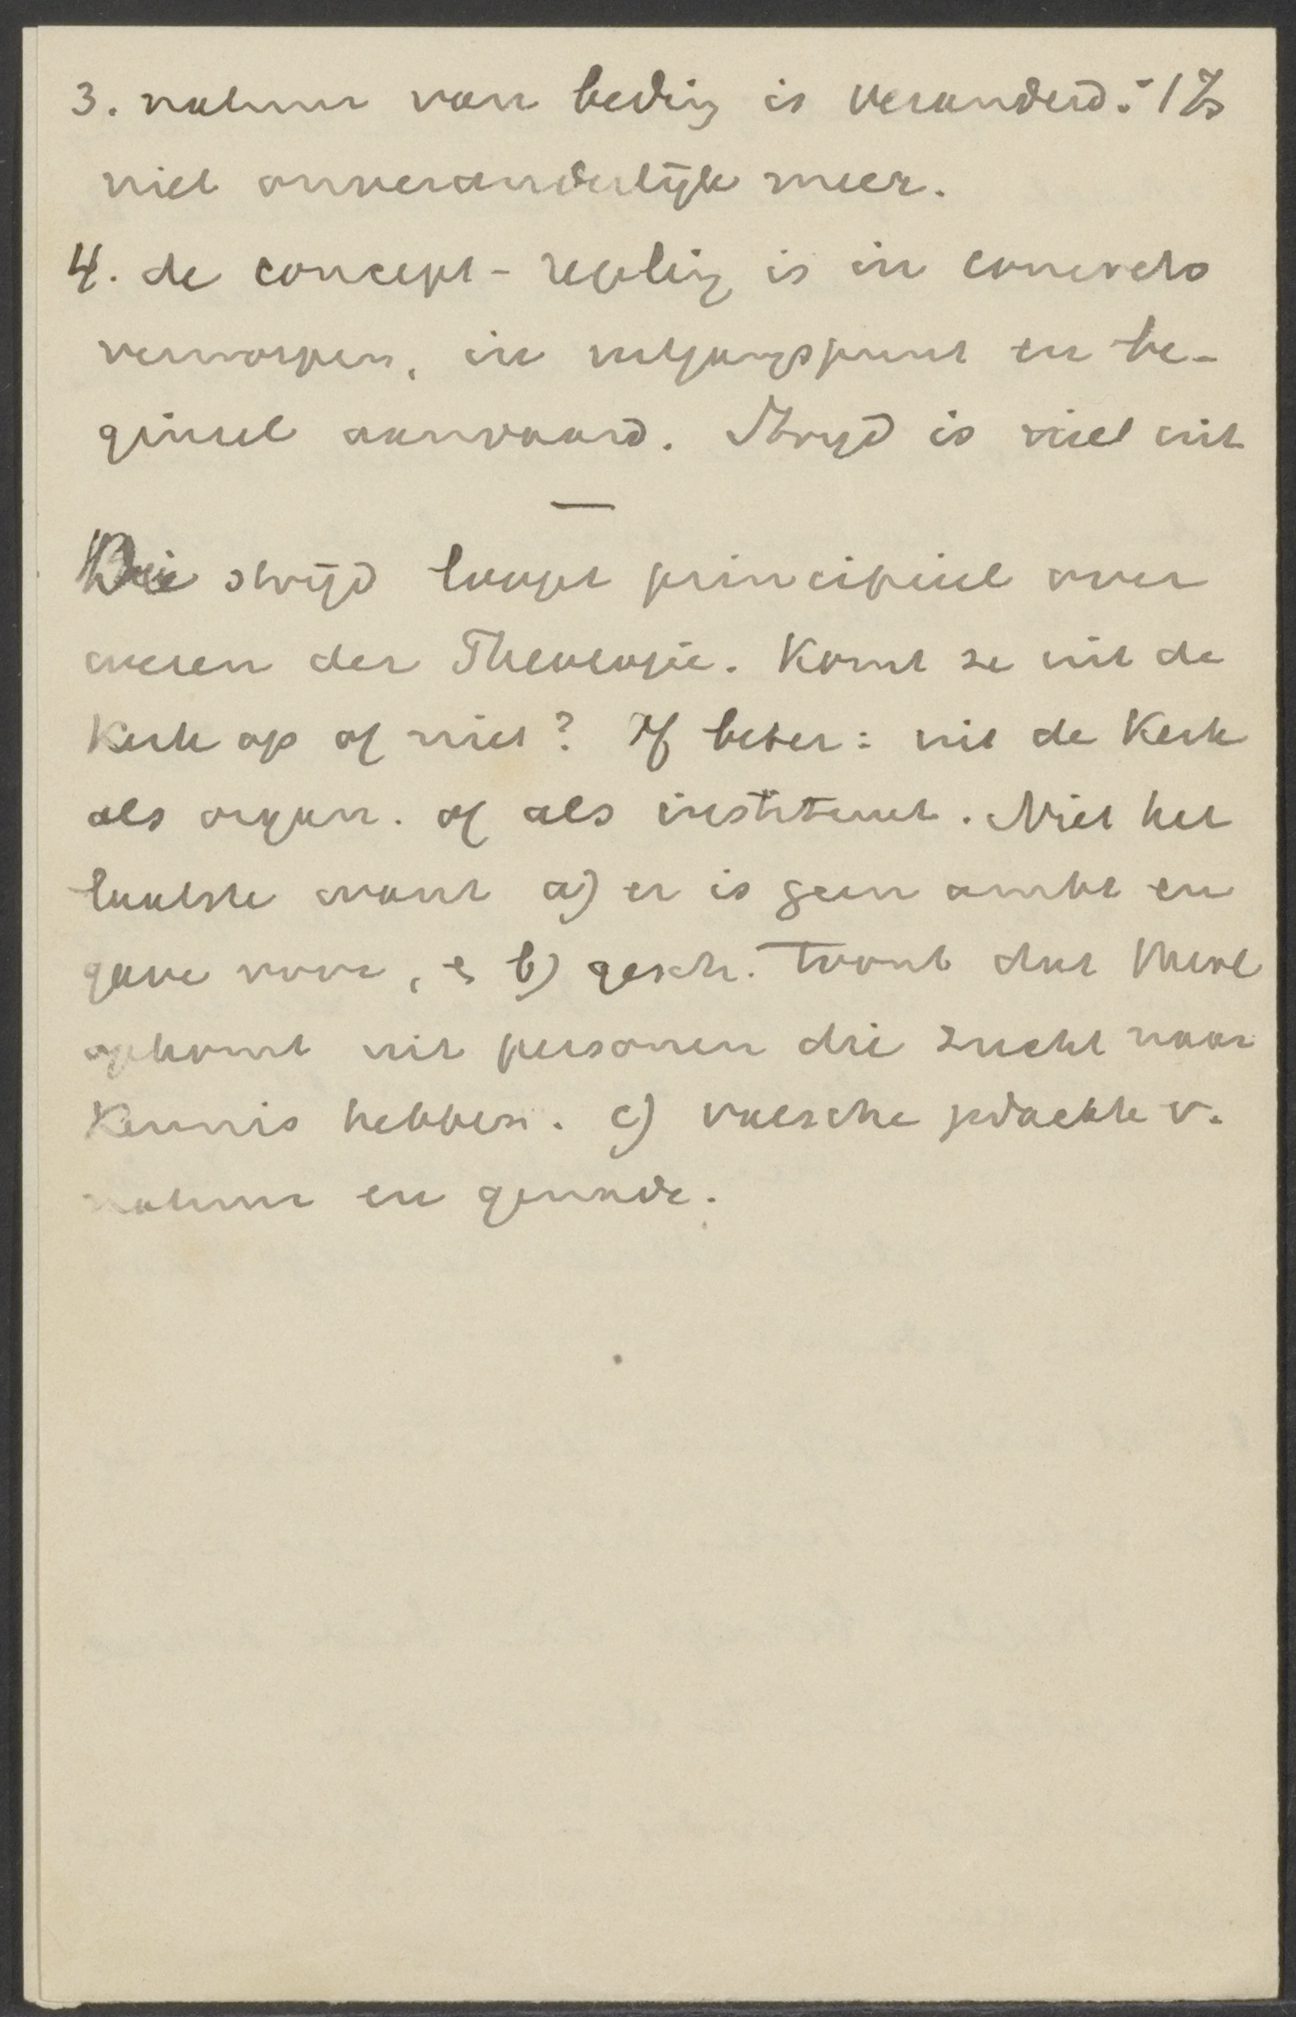 3. natuur van beding is veranderd:
niet onveranderlijk meer.
4. de concept-regeling is in concreto
verworpen, in uitgangspunt en be-
ginsel aanvaard. Strijd is niet uit
—
Die strijd loopt principieel over
wezen der Theologie. Komt ze uit de
Kerk op of niet? Of beter: uit de Kerk
als organ. of als instituut. Niet het
laatste want a) er is geen ambt en
gave voor, & b) gesch. toont dat theol
opkomt uit personen die zucht naar
Kennis hebben. c) valsche gedachte v.
natuur en genade.